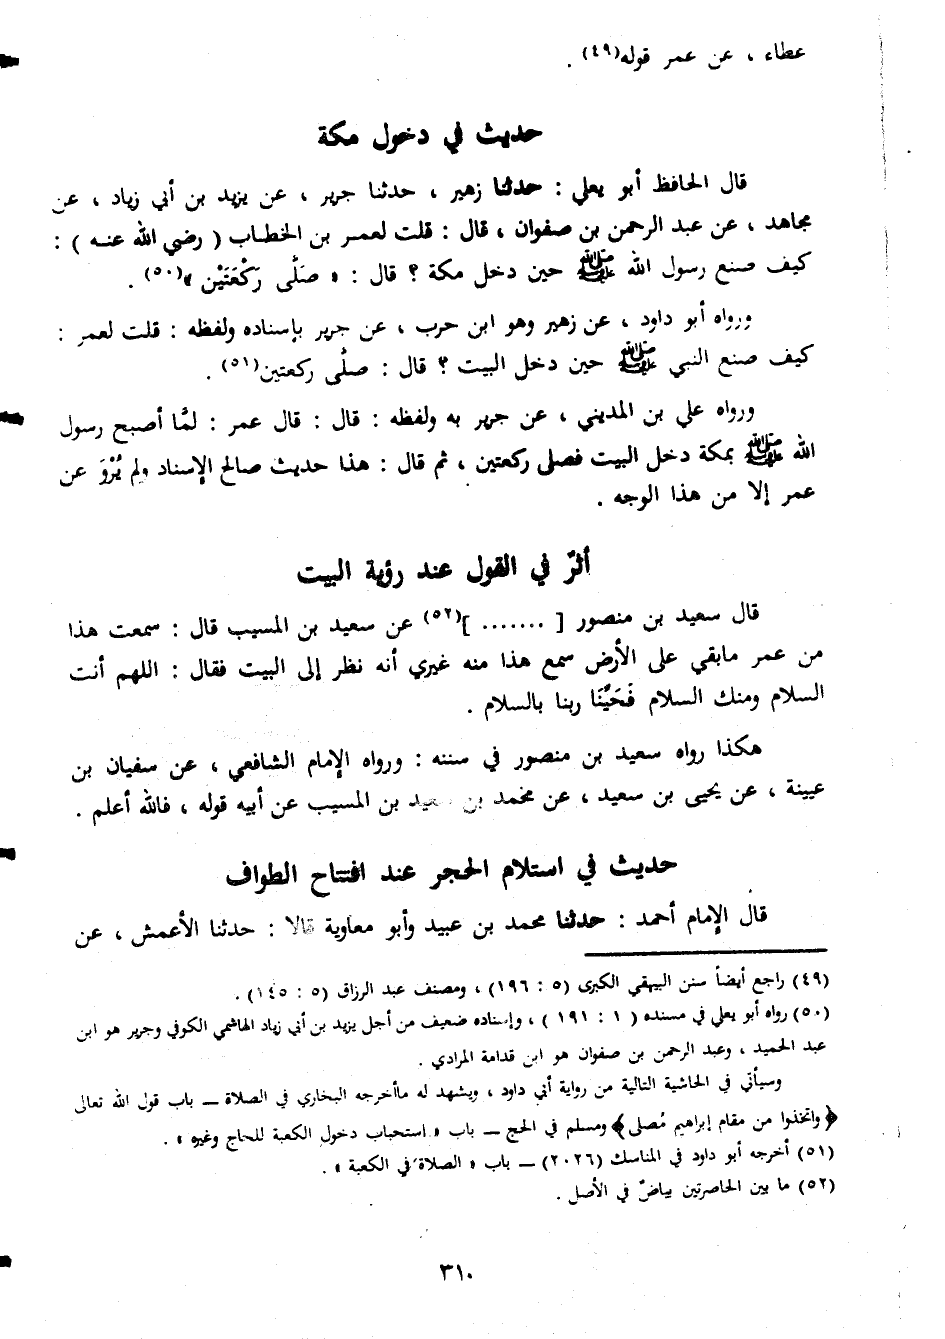 عطاء ، عن عمر قوله(٤٩) .
حديث في دخول مكة
قال الحافظ أبو يعلي : حدثنا زهير ، حدثنا جرير ، عن يزيد بن أبي زياد ، عن
مجاهد ، عن عبد الرحمن بن صفوان ، قال : قلت لعمر بن الخطاب ( رضي الله عنه ) :
كيف صنع رسول الله ﷺ حين دخل مكة ؟ قال : « صَلَّى رَكْعَتَيْن »(٥٠) .
ورواه أبو داود ، عن زهير وهو ابن حرب ، عن جرير بإسناده ولفظه : قلت لعمر :
كيف صنع النبي ﷺ حين دخل البيت ؟ قال : صلَّى ركعتين(٥١) .
ورواه علي بن المديني ، عن جرير به ولفظه : قال : قال عمر : لمَّا أصبح رسول
الله ﷺ بمكة دخل البيت فصلى ركعتين ، ثم قال : هذا حديث صالح الإسناد ولم يُرْوَ عن
عمر إلا من هذا الوجه .
أثرٌ في القول عند رؤية البيت
قال سعيد بن منصور [ ....... ](٥٢) عن سعيد بن المسيب قال : سمعت هذا
من عمر مابقي على الأرض سمع هذا منه غيري أنه نظر إلى البيت فقال : اللهم أنت
السلام ومنك السلام فَحَيِّنَا ربنا بالسلام .
هكذا رواه سعيد بن منصور في سننه : ورواه الإمام الشافعي ، عن سفيان بن
عيينة ، عن يحيى بن سعيد ، عن محمد بن سعيد بن المسيب عن أبيه قوله ، فالله أعلم .
حديث في استلام الحجر عند افتتاح الطواف
قال الإمام أحمد : حدثنا محمد بن عبيد وأبو معاوية قالا : حدثنا الأعمش ، عن
(٤٩) راجع أيضاً سنن البيهقي الكبرى (٥ : ١٩٦) ، ومصنف عبد الرزاق (٥ : ١٤٥) .
(٥٠) رواه أبو يعلي في مسنده ( ١ : ١٩١ ) ، وإسناده ضعيف من أجل يزيد بن أبي زياد الهاشمي الكوفي وجرير هو ابن
عبد الحميد ، وعبد الرحمن بن صفوان هو ابن قدامة المرادي .
وسيأتي في الحاشية التالية من رواية أبي داود ، ويشهد له ماأخرجه البخاري في الصلاة ــ باب قول الله تعالى
﴿ واتخذوا من مقام إبراهيم مُصلى ﴾ ومسلم في الحج ــ باب « استحباب دخول الكعبة للحاج وغيره » .
(٥١) أخرجه أبو داود في المناسك (٢٠٢٦) ــ باب « الصلاة في الكعبة » .
(٥٢) ما بين الحاصرتين بياضٌ في الأصل .
٣١٠